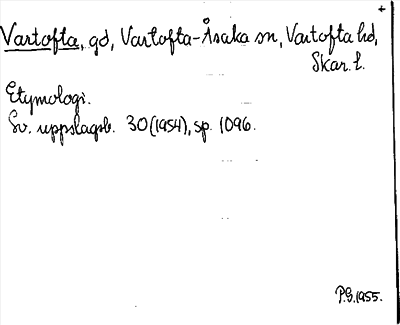 +
Vartofta, gd, Vartofta-Åsaka sn, Vartofta hd,
Skar. l.
Etymologi.
Sv. uppslagsb. 30 (1954), sp. 1096.
P.G. 1955.